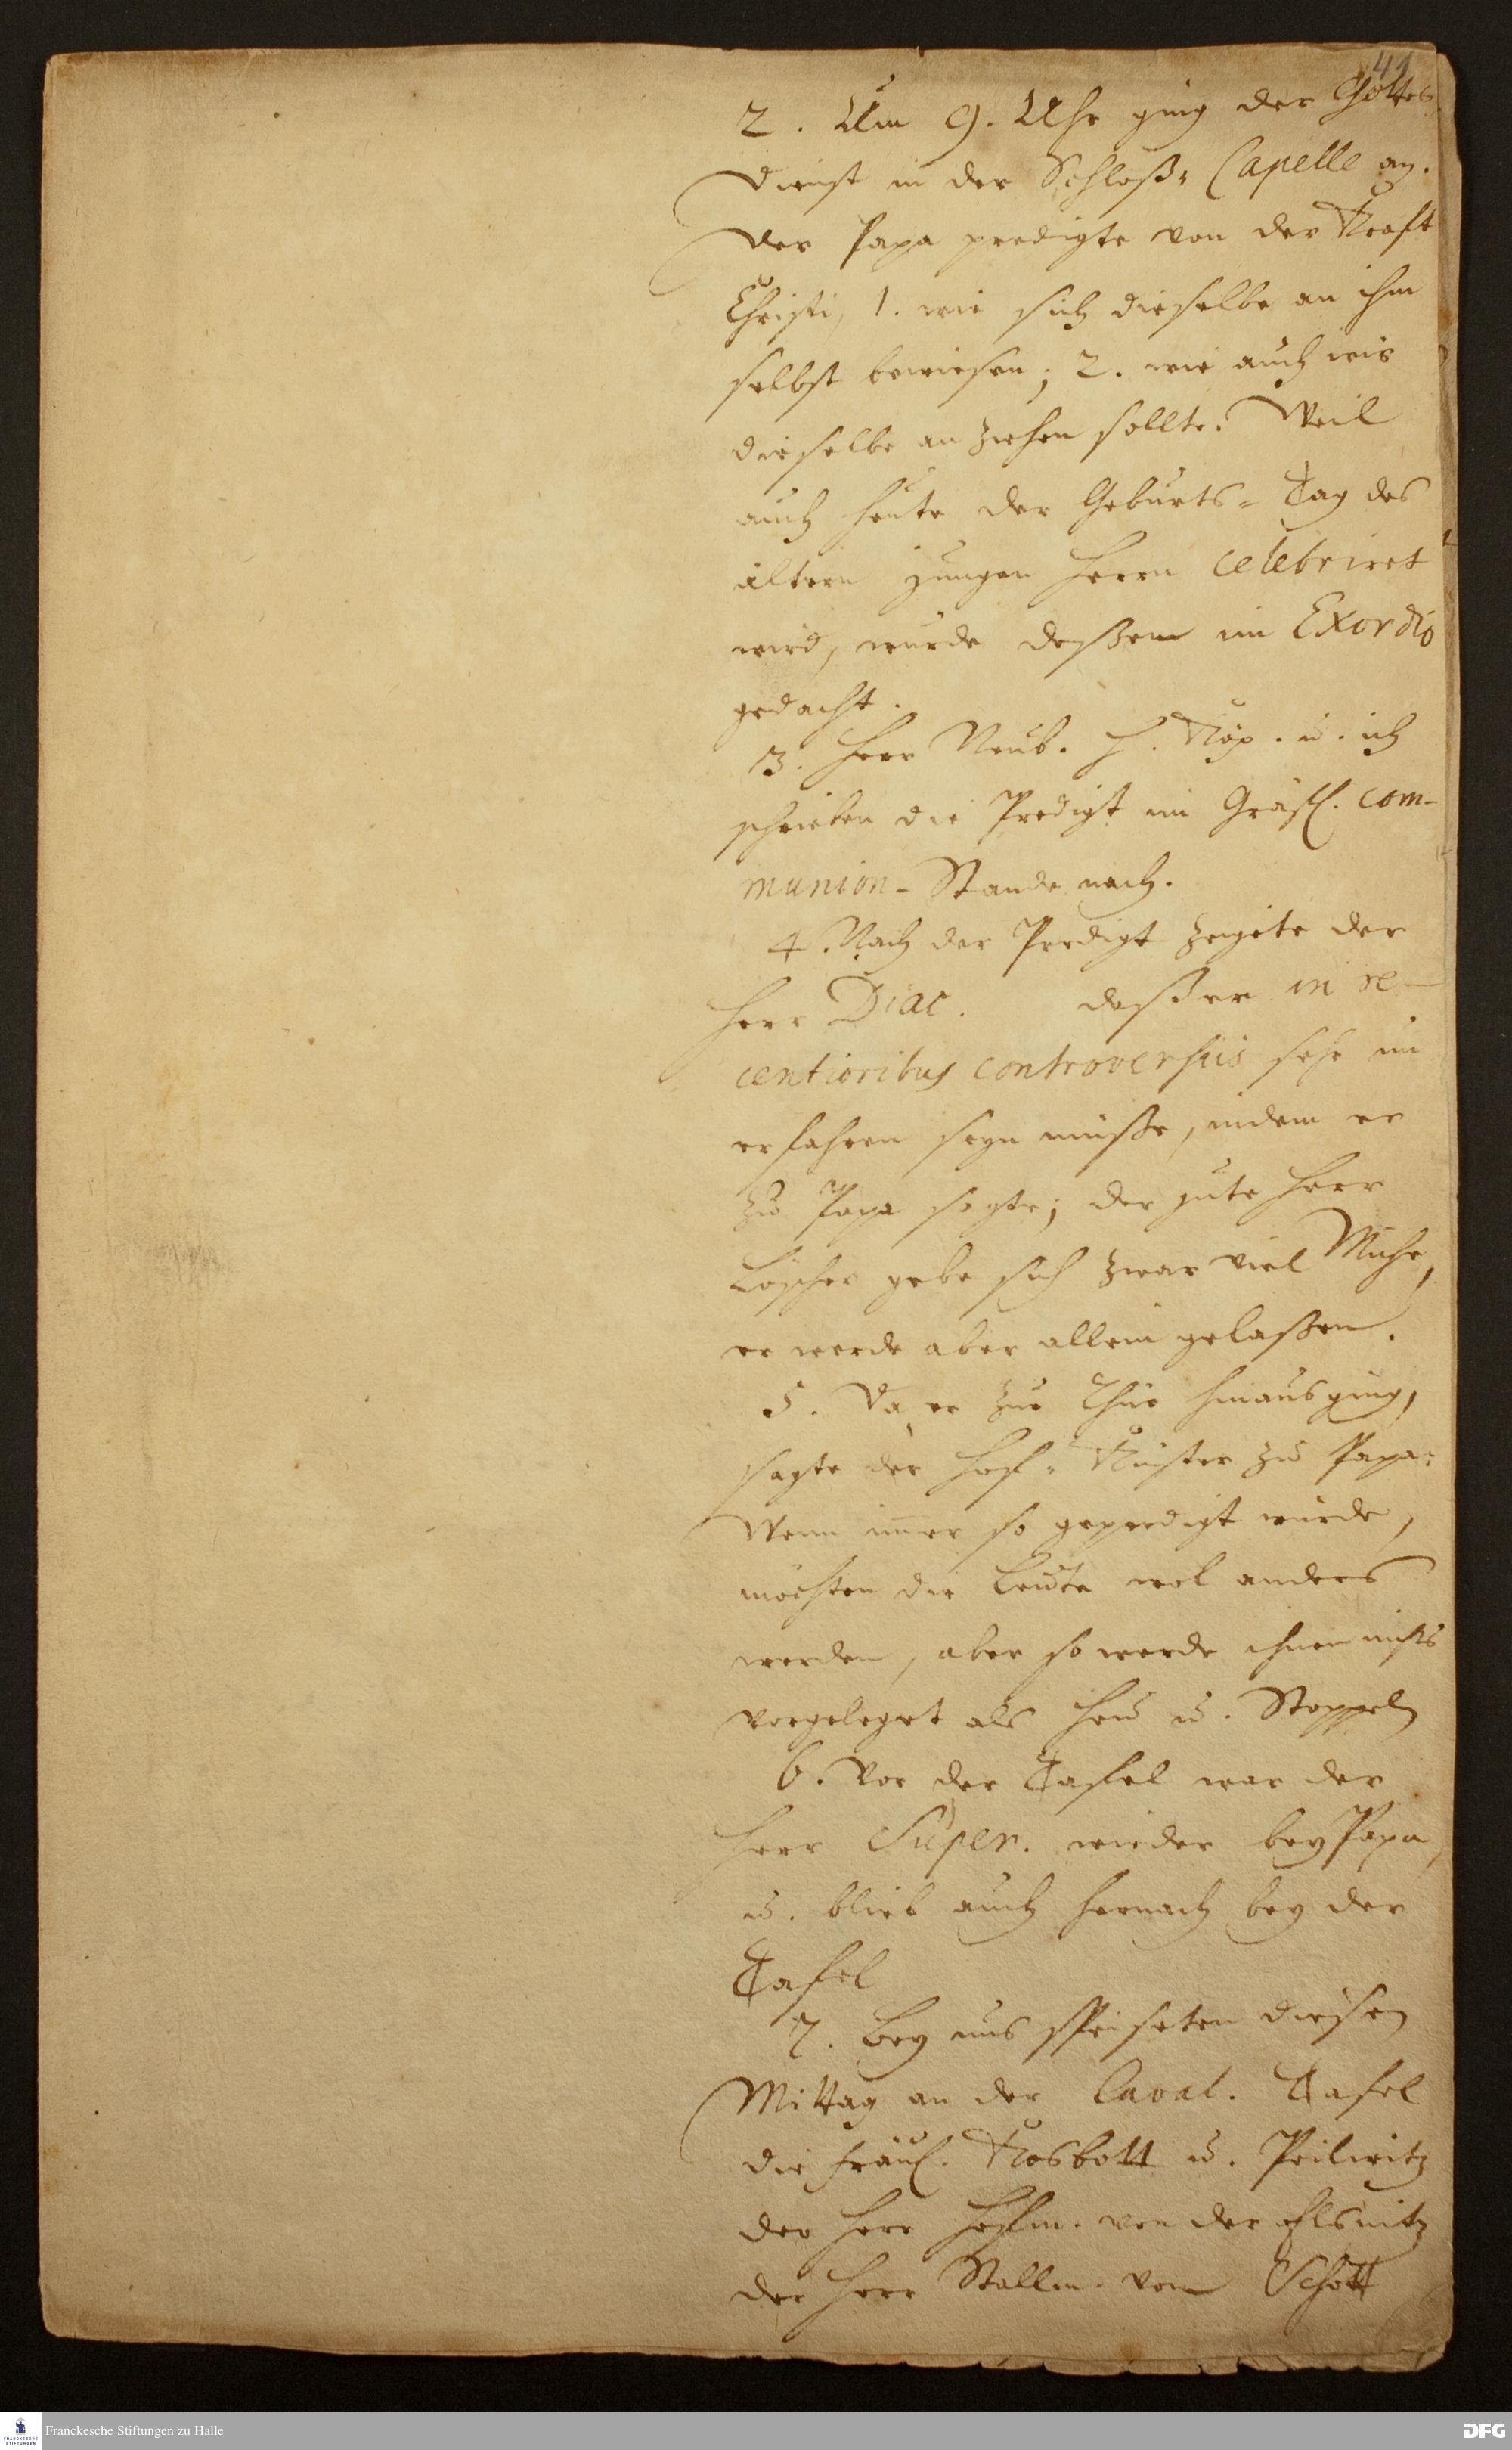 41
2. Um 9. Uhr ging der Gottes
dienst in der Schloß- Capelle an.
Der Papa predigte von der Krafft
Christi, 1. wie sich dieselbe an ihm
selbst bewiesen; 2. wie auch wir
dieselbe an ziehen sollte. Weil
auch heute der Geburts- Tag des
ältern jungen Herrn celebriret
wird, wurde deßen im Exordio
gedacht.
3. Herr Neub. H. Köp. u. ich
schrieben die Predigt im Gräfl. com-
munion-Stande nach.
4. Nach der Predigt zeigte der
Herr Diac. daß er in re-
centioribus controversiis sehr un
erfahren seyn müße, indem er
zu Papa sagte; der gute Herr
Löscher gebe sich zwar viel Mühe,
er werde aber allein gelaßen.
5. Da er zur Thür hinausging,
sagte der Hof- Küster zu Papa:
Wenn im̅er so geprediget würde,
möchten die Leute wol anders
werden, aber so werde ihnen nichts
vorgeleget als Heu u. Stoppeln
6. Vor der Tafel war der
Herr Super. wieder bey Papa,
u. blieb auch hernach bey der
Tafel
7. Bey uns speiseten diesen
Mittag an der Caval. Tafel
die Fräul. Kosbott u. Peilwitz
der Herr Hofm. von der Elsnitz
der Herr Stallm. von Schott
Franckesche Stiftungen zu Halle
DFG